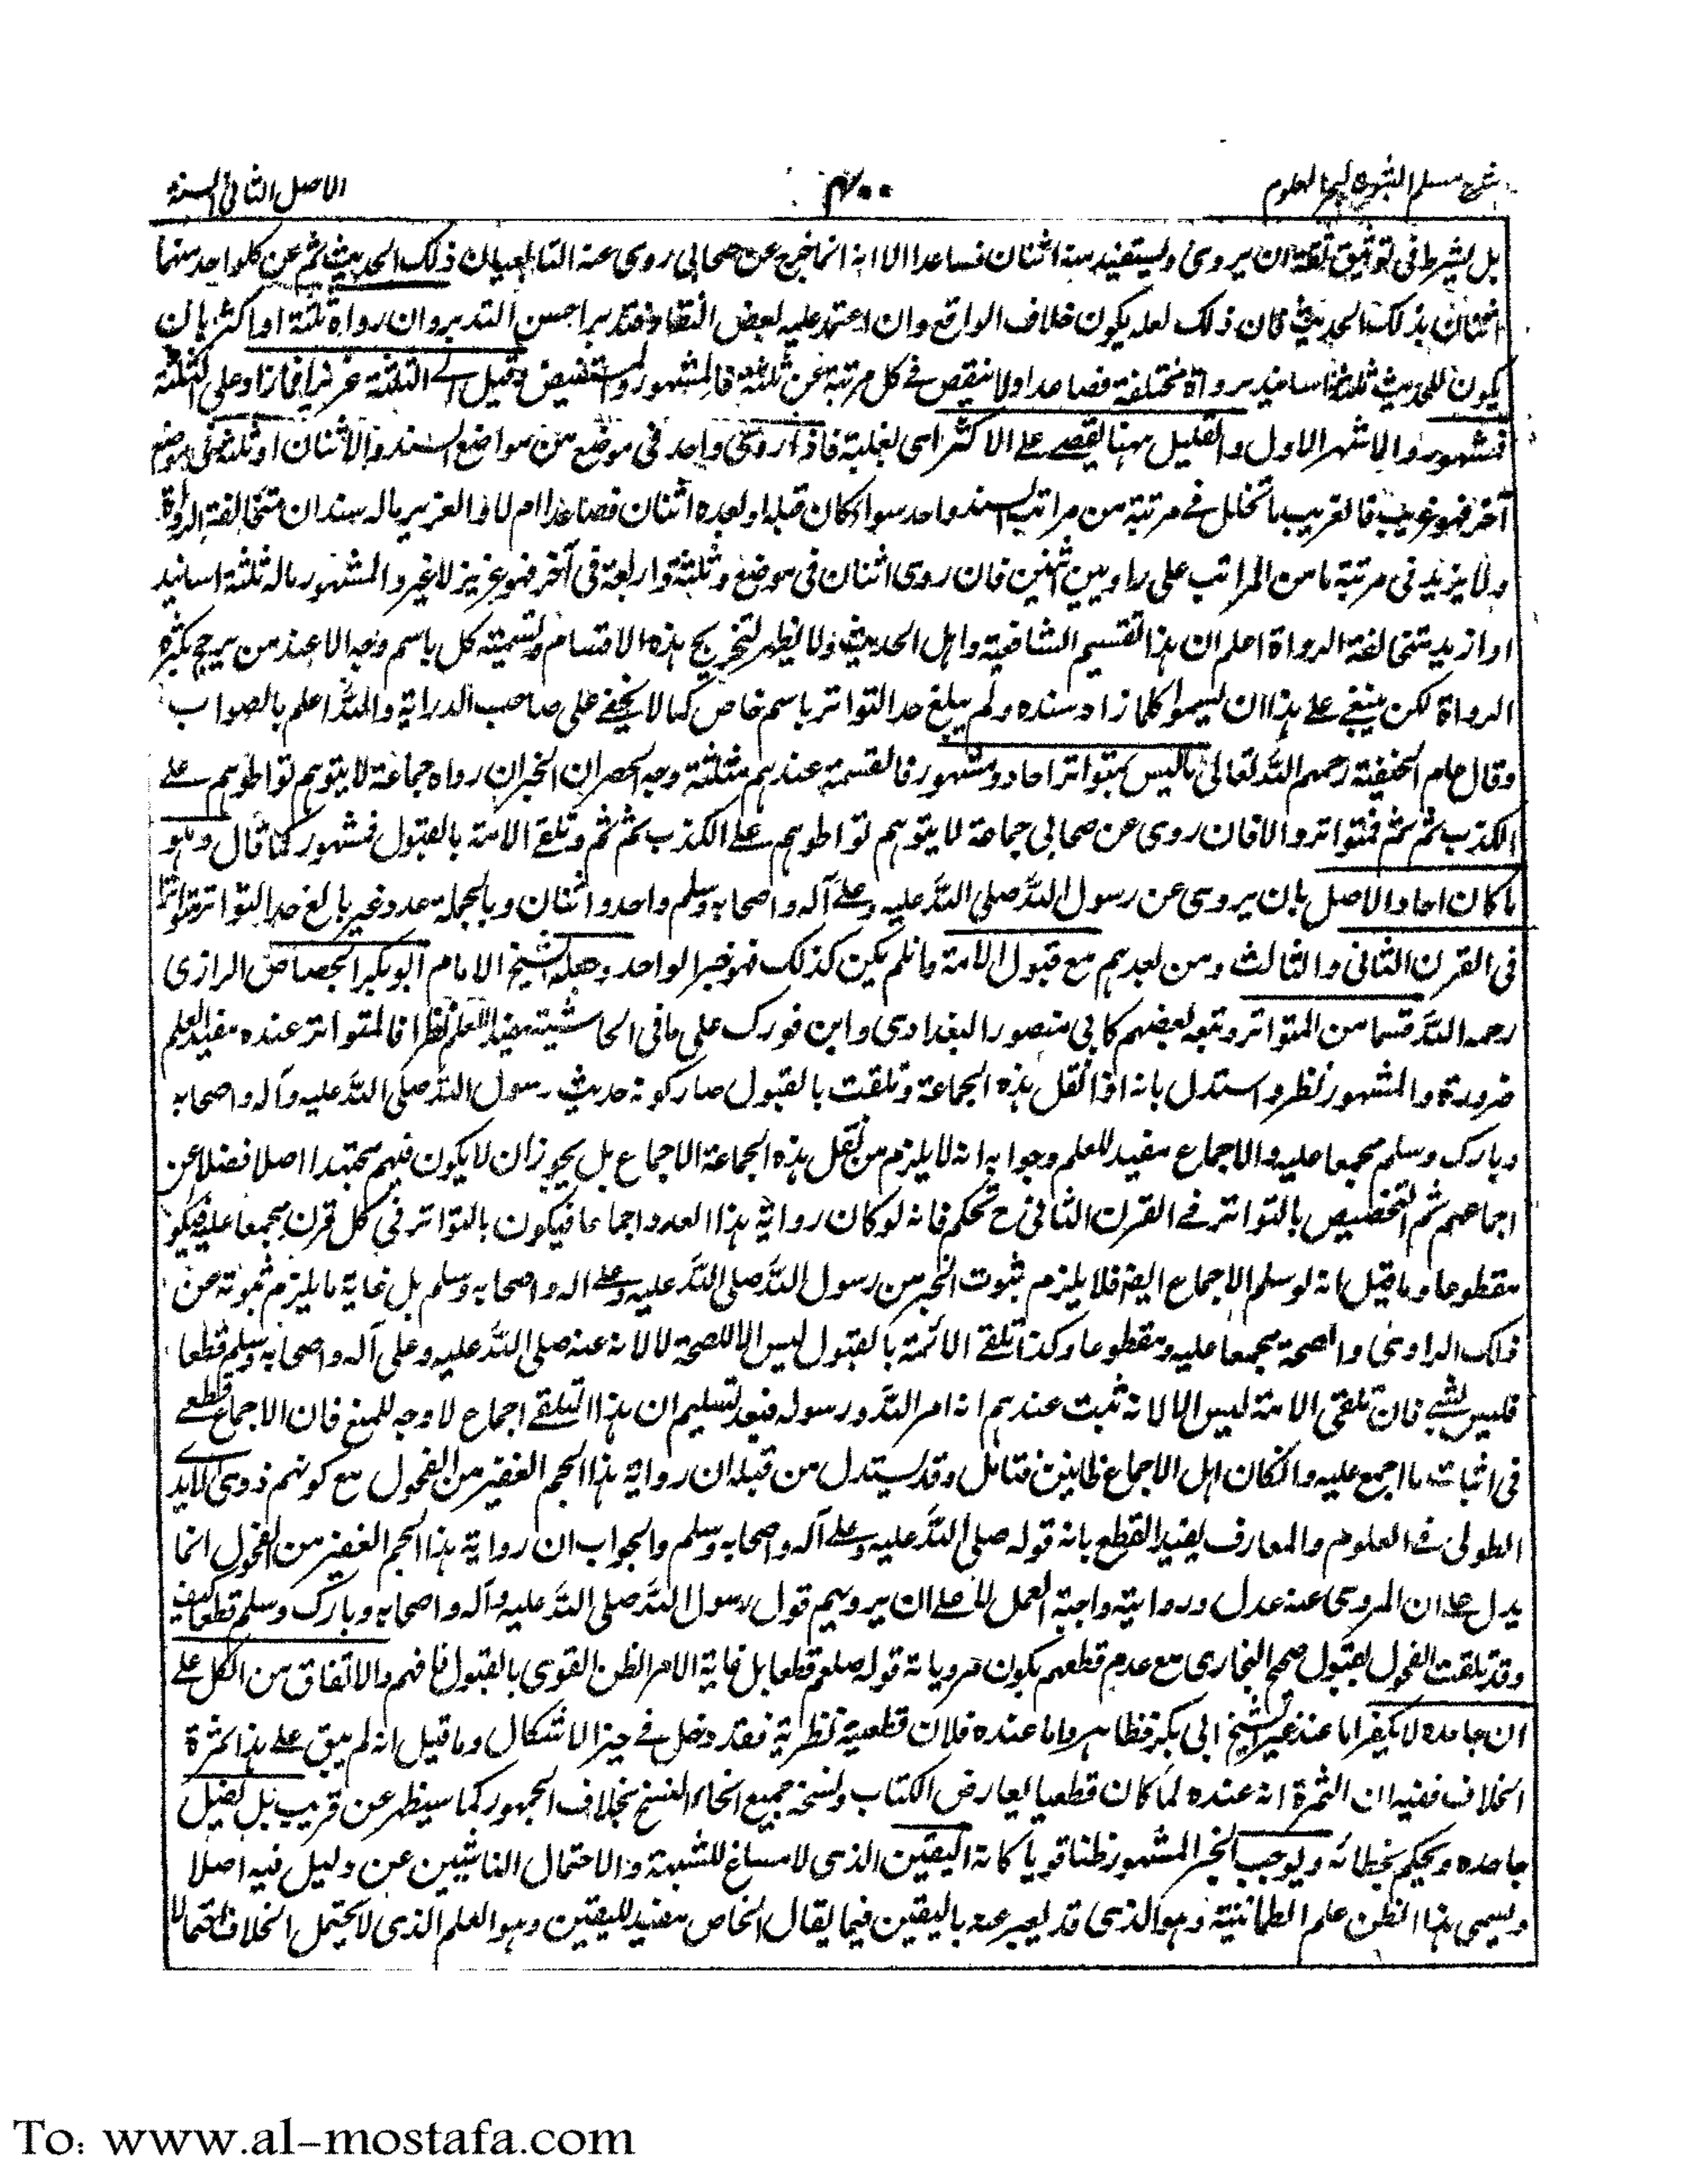 شرح مسلم الثبوت لبحر العلوم
۴۰۰
الاصل الثانی السنة
بل یشرط فی توثیق ثقة ان یروی ویستفید منه اثنان فصاعدا الا انه انما خرج عن صحابی روی عنه التابعیان ذلک الحدیث ثم عن کلواحد منهما
اثنان بذلک الحدیث فان ذلک لعله یکون خلاف الواقع وان اعتمد علیه بعض الثقات فتدبر احسن التدبر وان رواه ثلثة او اکثر بان
یکون للحدیث ثلثة اسانید برواة مختلفة فصاعدا ولا ینقص فی کل مرتبة عن ثلثة فالمشهور والمستفیض وقیل الی الثلثة عزیز فما زاد علی الثلثة
فمشهور والاشهر الاول والقلیل ههنا یقضے علی الاکثر ای یغلبه فاذا روی واحد فی موضع من مواضع السند والاثنان او ثلثة فی موضع
آخر فهو غریب فالغریب ما تخلل فے مرتبة من مراتب السند واحد سواء کان قبله او بعده اثنان فصاعدا ام لا والعزیز ماله سندان متخالفة الرواة
ولا یزید فی مرتبة ما من المراتب علی راویین اثنین فان روی اثنان فی موضع وثلثة واربعة فی آخر فهو عزیز لا غیر والمشهور ماله ثلثة اسانید
او ازید متخالفة الرواة اعلم ان هذا تقسیم الشافعیة واهل الحدیث ولا یظهر لتخریج هذه الاقسام وتسمیة کل باسم وجه الا عند من یرجح بکثرة
الرواة لکن ینبغے علے هذا ان یسموا کلما زاد سنده ولم یبلغ حد التواتر باسم خاص کما لا یخفے علی صاحب الدرایة والله اعلم بالصواب
وقال عام الحنفیة رحمهم الله تعالی ما لیس بمتواتر احاد ومشهور فالقسمة عندهم مثلثة وجه الحصر ان الخبر ان رواه جماعة لا یتوهم تواطوهم علے
الکذب ثم ثم فمتواتر والا فان روی عن صحابی جماعة لا یتوهم تواطوهم علے الکذب ثم ثم وتلقے الامة بالقبول فمشهور کما قال وهو
ما کان احاد الاصل بان یروی عن رسول الله صلی الله علیه وعلے آله واصحابه وسلم واحد واثنان وبالجملة عدد غیر بالغ حد التواتر متواترا
فی القرن الثانی والثالث ومن بعدهم مع قبول الامة فانلم یکن کذلک فهو خبر الواحد وجعله الشیخ الامام ابو بکر الجصاص الرازی
رحمه الله قسما من المتواتر وتبعه بعضهم کابی منصور البغدادی وابن فورک علی ما فی الحاشیة مفیدا للعلم نظرا فالمتواتر عنده مفید للعلم
ضرورة والمشهور نظر واستدل بانه اذا نقل هذه الجماعة وتلقت بالقبول صار کونه حدیث رسول الله صلی الله علیه وآله واصحابه
وبارک وسلم مجمعا علیه والاجماع مفید للعلم وجوابه انه لا یلزم من نقل هذه الجماعة الاجماع بل یجوز ان لا یکون فیهم مجتهد اصلا فضلا عن
اجماعهم ثم التخصیص بالتواتر فے القرن الثانی ح تحکم فانه لو کان روایة هذا العدد اجماعا فیکون بالتواتر فی کل قرن مجمعا علیه فیکون
مقطوعا وما قیل انه لو سلم الاجماع ایضا فلا یلزم ثبوت الخبر من رسول الله صلی الله علیه وعلے اله واصحابه وسلم بل غایة ما یلزم ثبوته من
ذلک الراوی والصحة مجمعا علیه ومقطوعا وکذا تلقے الائمة بالقبول لیس الا للصحة لا لانه عنه صلی الله علیه وعلی آله واصحابه وسلم قطعا
فلیس بشے فان تلقی الامة لیس الا لانه ثبت عندهم انه امر الله ورسوله فبعد تسلیم ان هذا التلقے اجماع لا وجه للمنع فان الاجماع قطعے
فی اثبات ما اجمع علیه وانکان اهل الاجماع ظانین فتامل وقد یستدل من قبله ان روایة هذا الجم الغفیر من الفحول مع کونهم ذوی الاید
الطولی فے العلوم والمعارف یفید القطع بانه قوله صلی الله علیه وعلے آله واصحابه وسلم والجواب ان روایة هذا الجم الغفیر من الفحول انما
یدل علے ان المروی عنه عدل وروایته واجبة العمل لا علے ان یرویهم قول رسول الله صلی الله علیه وآله واصحابه وبارک وسلم قطعا کیف
وقد تلقت الفحول بقبول صحیح البخاری مع عدم قطعهم بکون مرویاته قوله صلعم قطعا بل غایة الامر الظن القوی بالقبول فافهم والاتفاق من الکل علے
ان جاحده لا یکفر اما عند غیر الشیخ ابی بکر فظاهر واما عنده فلان قطعیة نظریة فقد دخل فے حیز الاشکال وما قیل انه لم یبق علے هذا ثمرة
الخلاف ففیه ان الثمرة انه عنده لما کان قطعیا یعارض الکتاب ونسخه جمیع انحاء النسخ بخلاف الجمهور کما سیظهر عن قریب بل یضلل
جاحده ویحکم بخطائه ویوجب الخبر المشهور ظنا قویا کانه الیقین الذی لا مساغ للشبهة والاحتمال الناشیین عن دلیل فیه اصلا
ویسمی هذا الظن علم الطمانینة وهو الذی قد یعبر عنه بالیقین فیما یقال الخاص مفید للیقین وهو العلم الذی لا یحتمل الخلاف احتمالا
To: www.al-mostafa.com